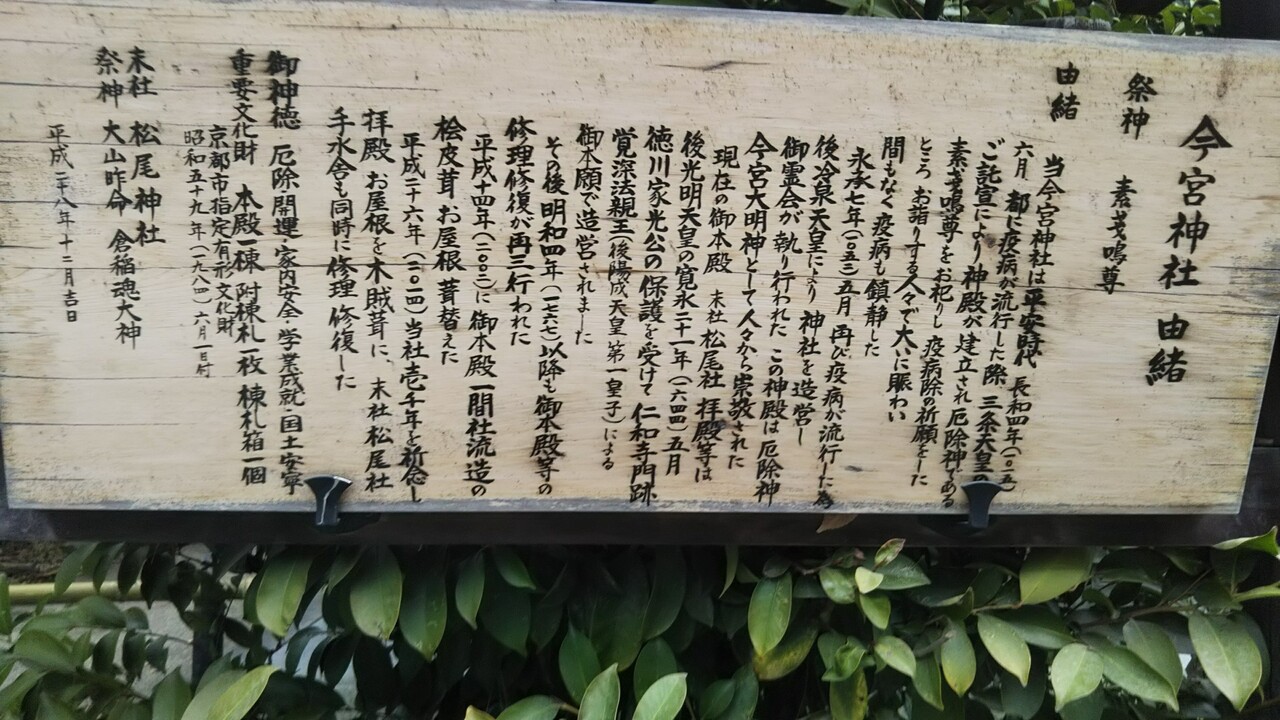 今宮神社 由緒
祭神 素戔嗚尊
由緒
当今宮神社は平安時代 長和四年(一〇一五)
六月 都に疫病が流行した際 三条天皇の
ご託宣により神殿が建立され 厄除神である
素戔嗚尊をお祀りし 疫病除の祈願をした
ところ お詣りする人々で大いに賑わい
間もなく疫病も鎮静した
永承七年(一〇五二)五月 再び疫病が流行した為
後冷泉天皇により 神社を造営し
御霊会が執り行われた この神殿は厄除神
今宮大明神として人々から崇敬された
現在の御本殿 末社 松尾社 拝殿等は
後光明天皇の寛永二十一年(一六四四)五月
徳川家光公の保護を受けて 仁和寺門跡
覚深法親王(後陽成天皇 第一皇子)による
御本願で造営されました
その後明和四年(一七六七)以降も御本殿等の
修理修復が再三行われた
平成十四年(二〇〇二)に御本殿 一間社流造の
桧皮葺 お屋根 葺替えた
平成二十六年(二〇一四)当社壱千年を祈念し
拝殿 お屋根を木賊葺に、末社 松尾社
手水舎も同時に修理 修復した
御神徳 厄除開運・家内安全・学業成就・国土安寧
重要文化財 本殿一棟 附棟札一枚 棟札箱一個
京都市指定有形文化財
昭和五十九年(一九八四)六月一日付
末社 松尾神社
祭神 大山咋命 倉稲魂大神
平成二八年十二月吉日